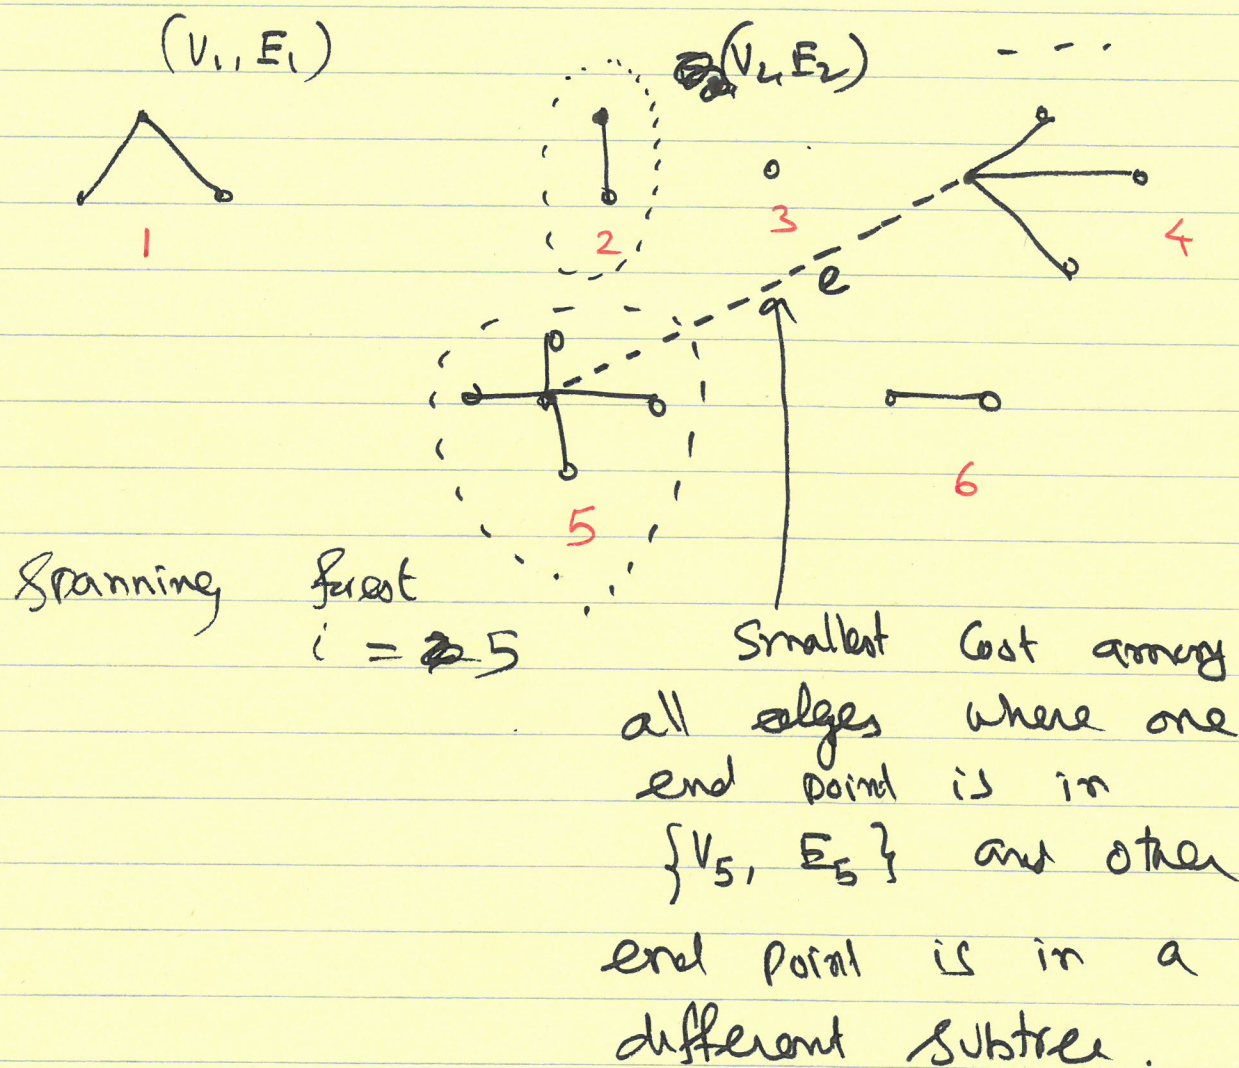 (V₁, E₁) (V₂, E₂) - - - .
1 2 3 4
e
5 6
Spanning forest
i = 5
Smallest Cost among
all edges where one
end point is in
{V₅, E₅} and other
end point is in a
different subtree.